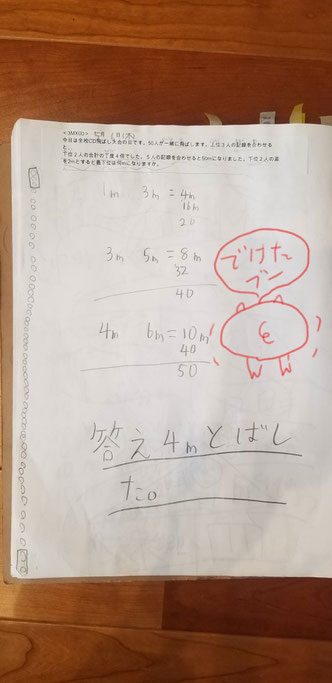 <3MX00> 七月 1日(木)
今日は全校CD飛ばし大会の日です。50人が一緒に飛ばします。上位3人の記録を合わせる
と、
下位2人の合計の丁度4倍でした。5人の記録を合わせると50mになりました。下位2人の差
を2mとすると最下位は何mになりますか。
1m 3m = 4m
16m
20
3m 5m = 8m
32
40
4m 6m = 10m
40
50
でけた
ブー
答え4mとばし
た。